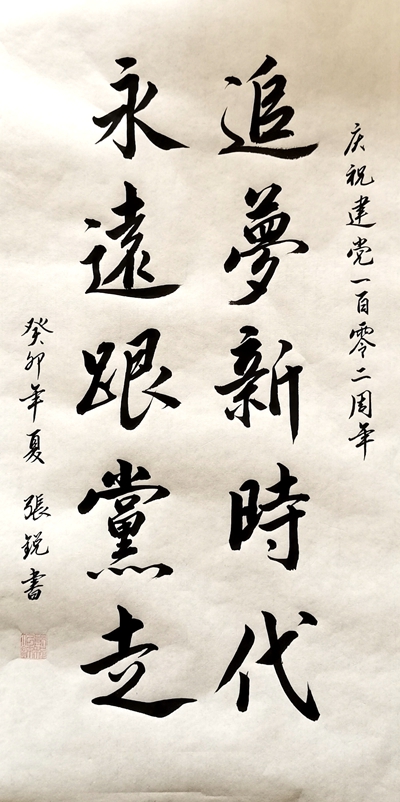 庆祝建党一百零二周年
追夢新時代
永遠跟黨走
癸卯年夏 張銳書